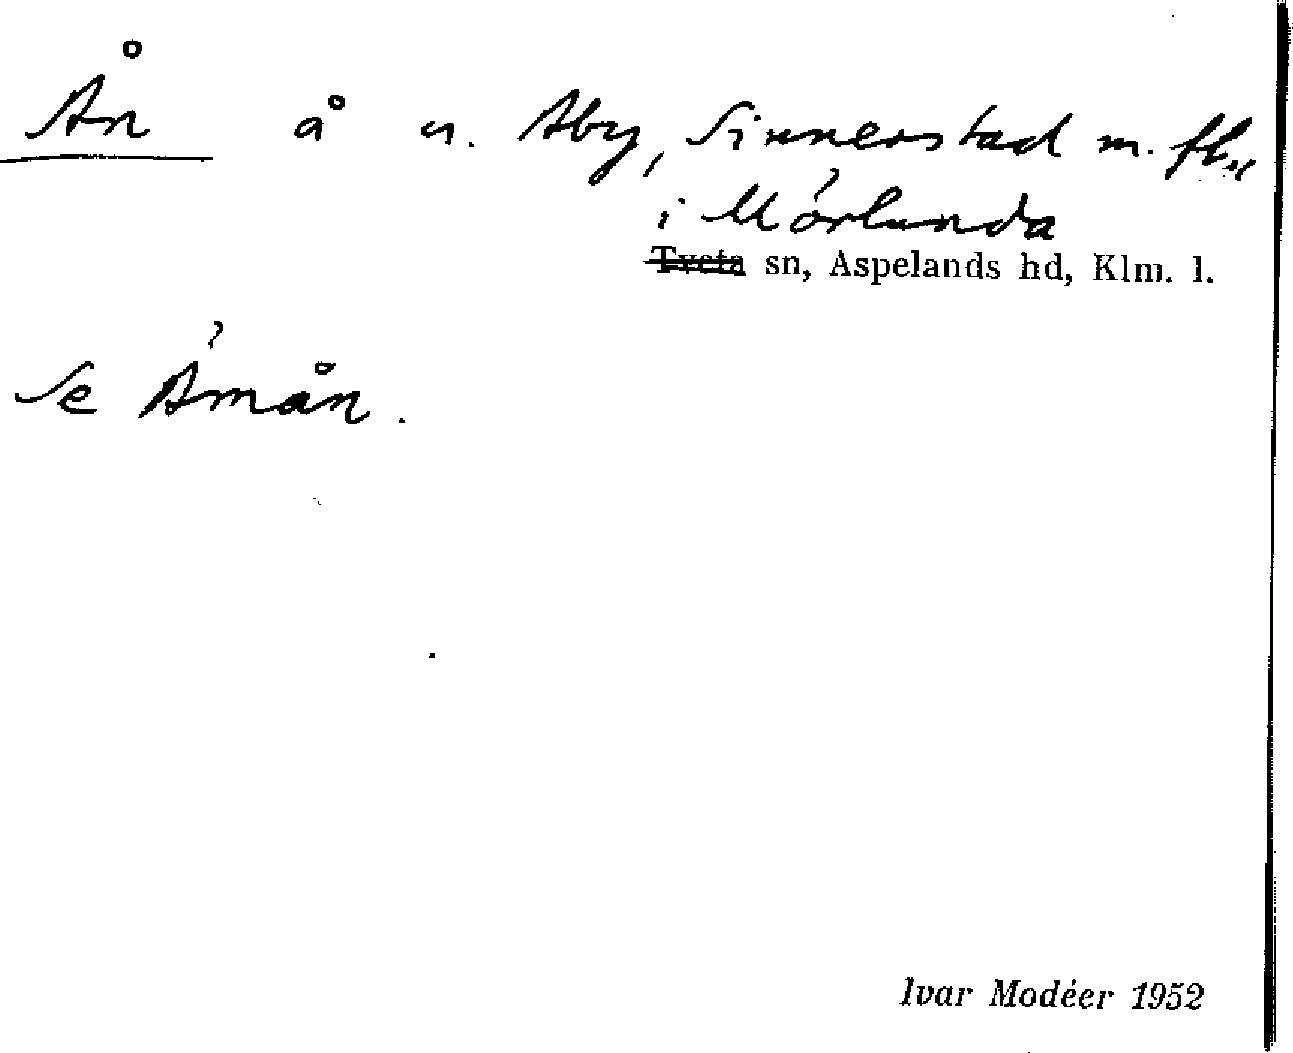 Ån å n. Åby, Sinnerstad m. fl.
i Mörlunda
Tveta sn, Aspelands hd, Klm. l.
Se Åmån.
Ivar Modéer 1952